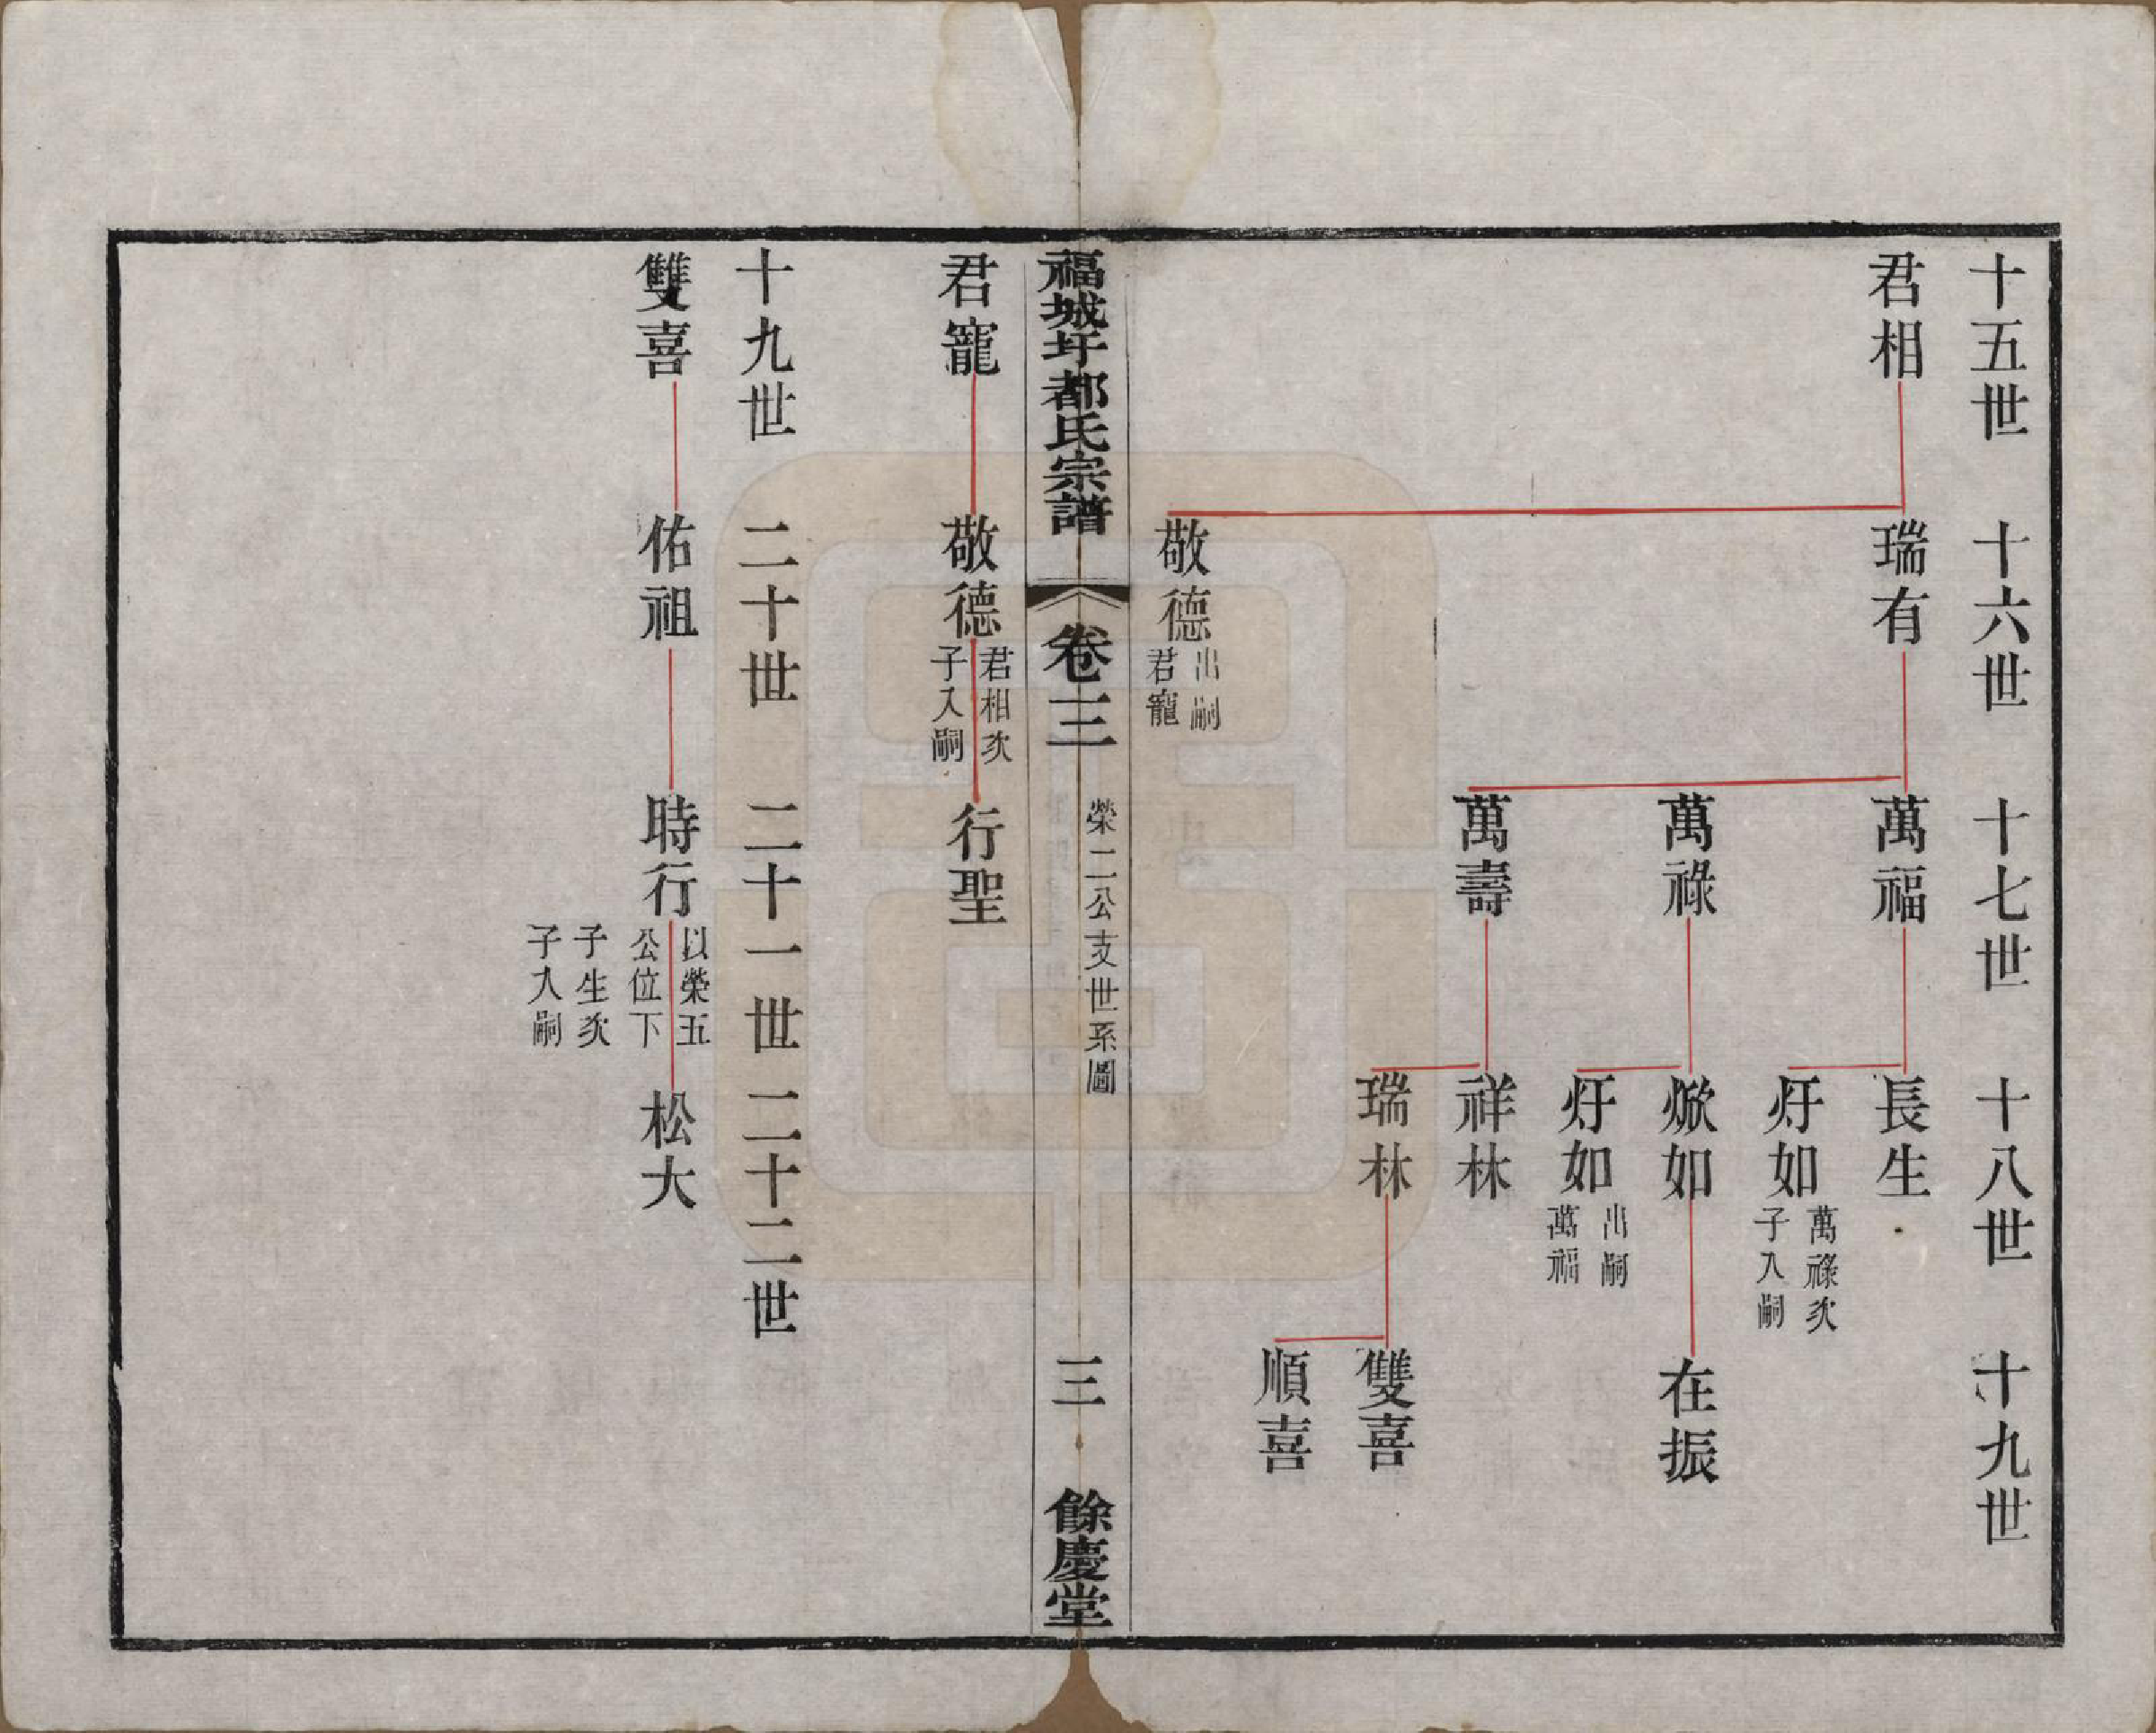 十五世 十六世 十七世 十八世 十九世
君相 瑞有 萬福 長生
炓如
萬祿次
子入嗣
萬祿 焮如 在振
炓如
出嗣
萬福
萬壽 祥林
瑞林 雙喜
順喜
敬德
出嗣
君寵
福城圩都氏宗譜 卷三 榮二公支世系圖 三 餘慶堂
君寵 敬德
君相次
子入嗣
行聖
十九世 二十世 二十一世 二十二世
雙喜 佑祖 時行
以榮五
公位下
子生次
子入嗣
松大